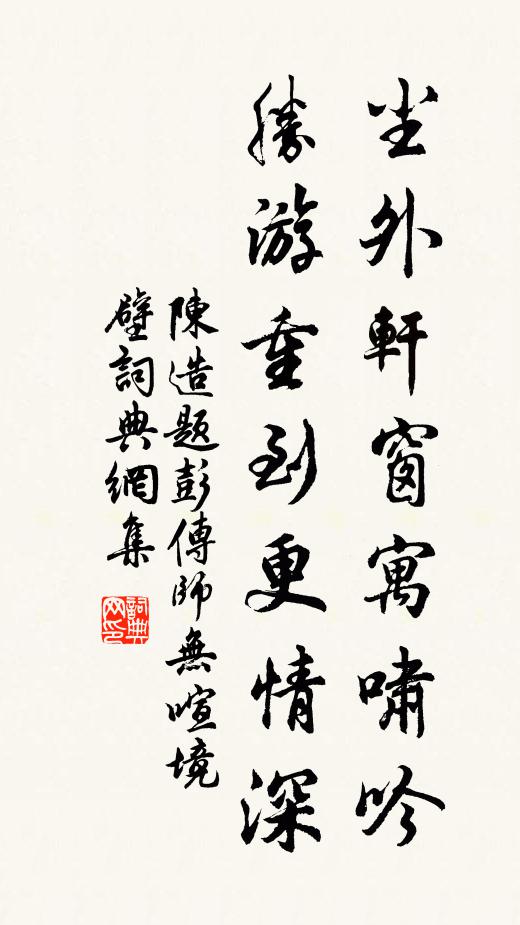 尘外軒窗寓嘯吟
勝游重到更情深
陳造題彭傅師無喧境
壁詞典網集
詞典网印